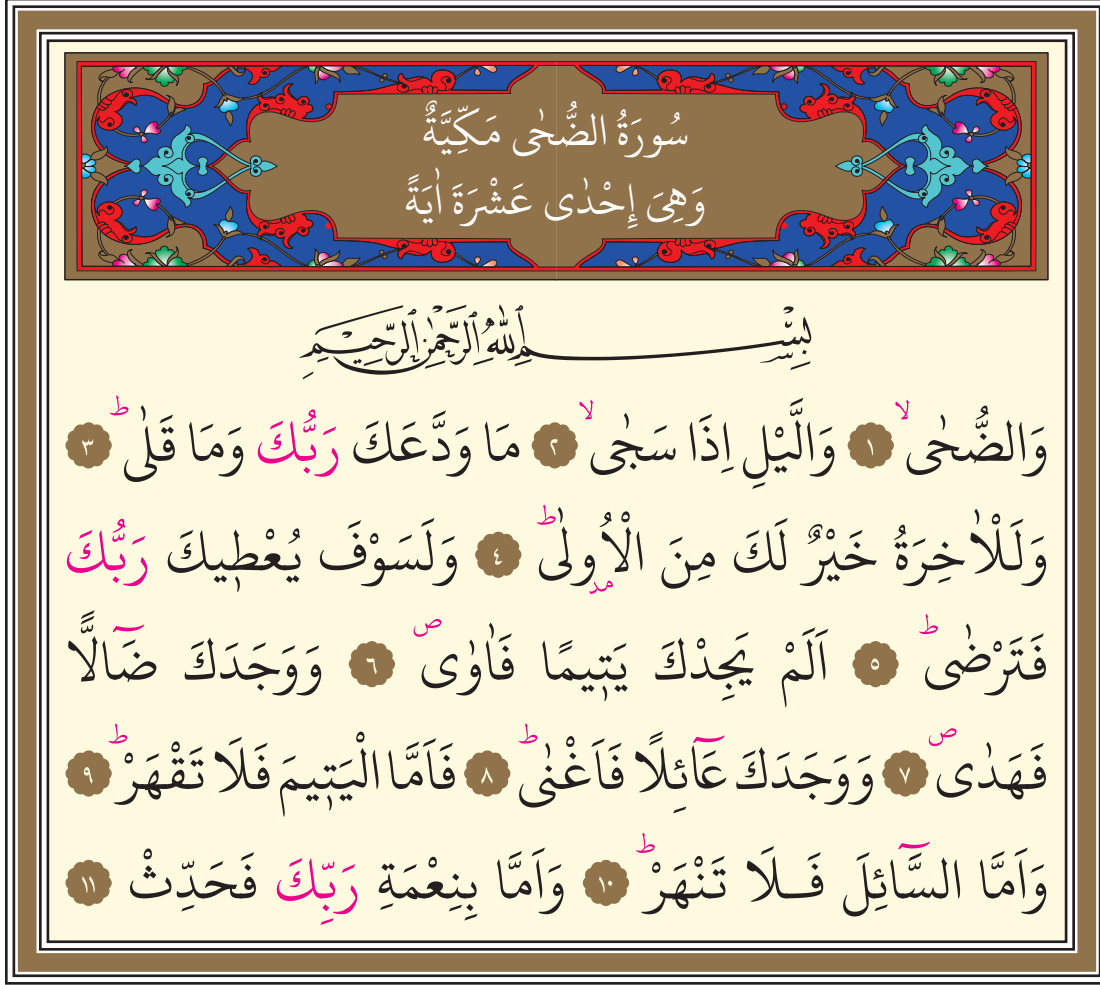 سُورَةُ الضُّحٰى مَكِّيَّةٌ
وَهِىَ إِحْدٰى عَشْرَةَ اٰيَةً
بِسْمِ اللّٰهِ الرَّحْمٰنِ الرَّحِيمِ
وَالضُّحٰىۙ ١ وَالَّيْلِ اِذَا سَجٰىۙ ٢ مَا وَدَّعَكَ رَبُّكَ وَمَا قَلٰىۜ ٣
وَلَلْاٰخِرَةُ خَيْرٌ لَكَ مِنَ الْاُو۫لٰىۜ ٤ وَلَسَوْفَ يُعْطٖيكَ رَبُّكَ
فَتَرْضٰىۜ ٥ اَلَمْ يَجِدْكَ يَتٖيمًا فَاٰوٰىۖ ٦ وَوَجَدَكَ ضَٓالًّا
فَهَدٰىۖ ٧ وَوَجَدَكَ عَٓائِلًا فَاَغْنٰىۜ ٨ فَاَمَّا الْيَتٖيمَ فَلَا تَقْهَرْۜ ٩
وَاَمَّا السَّٓائِلَ فَلَا تَنْهَرْۜ ١٠ وَاَمَّا بِنِعْمَةِ رَبِّكَ فَحَدِّثْ ١١